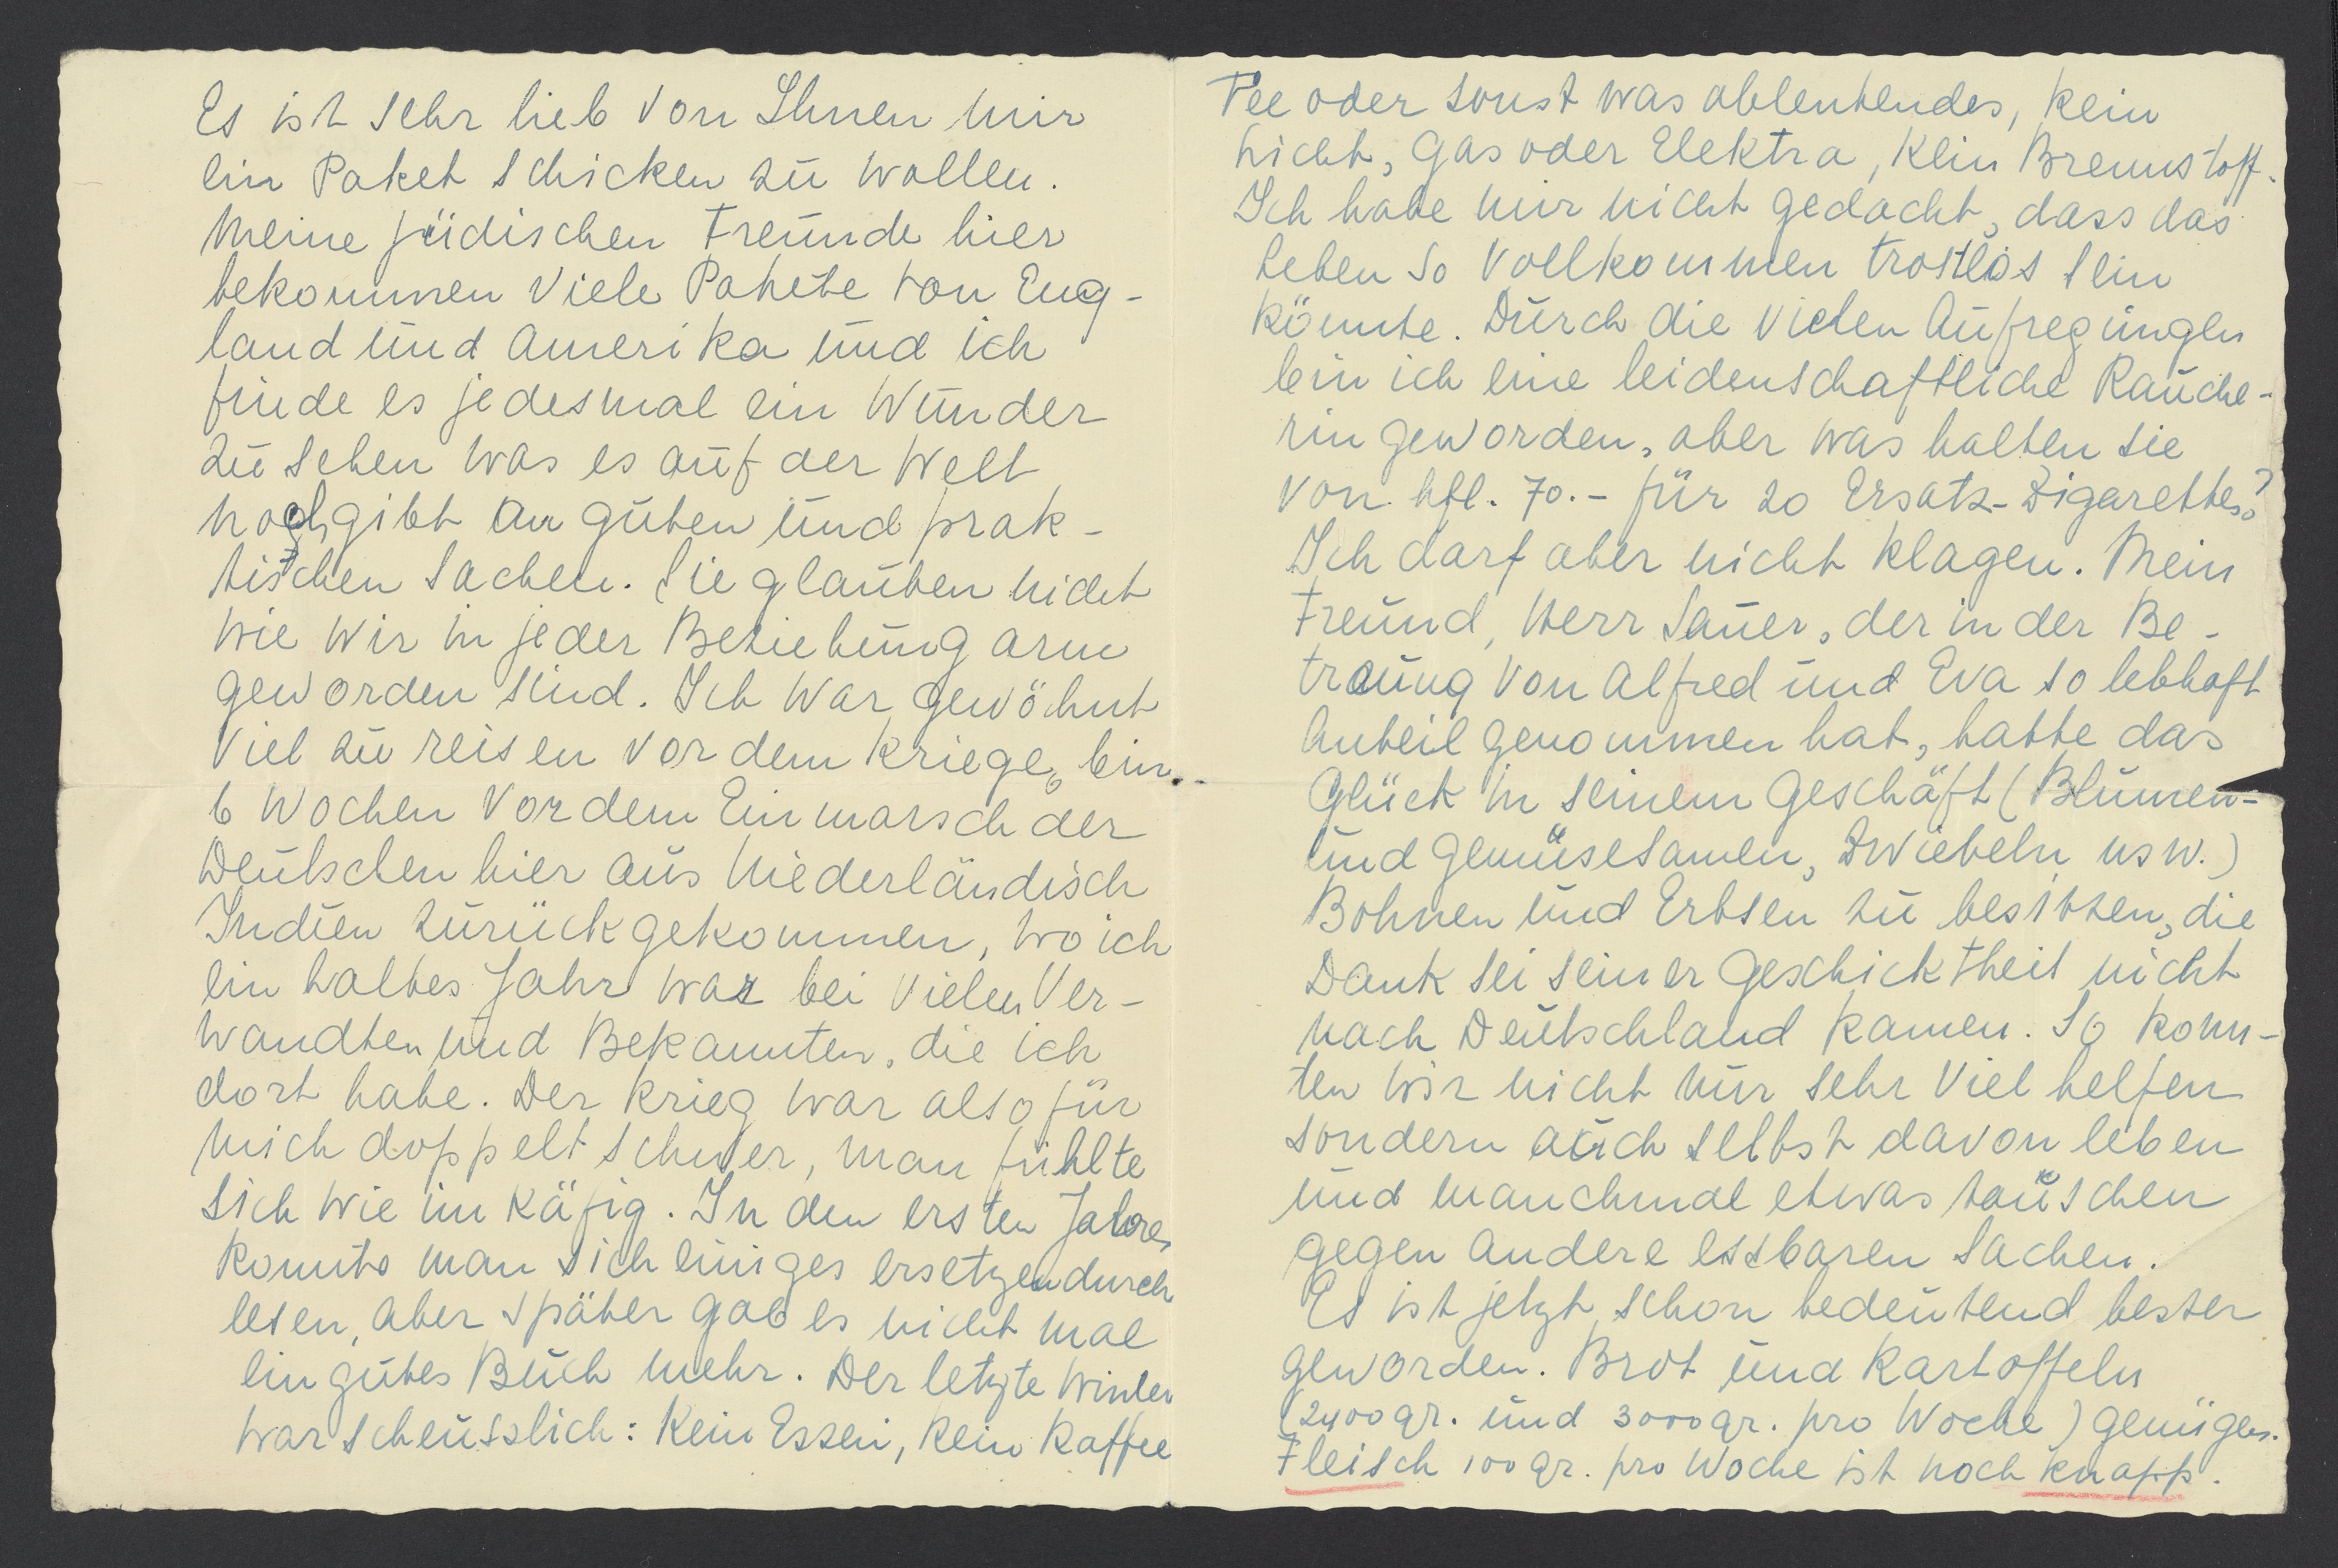 Es ist sehr lieb von Ihnen mir
ein Paket schicken zu wollen.
Meine jüdischen Freunde hier
bekommen viele Pakete von Eng-
land und Amerika und ich
finde es jedesmal ein Wunder
zu sehen was es auf der Welt
noch gibt an guten und prak-
tischen Sachen. Sie glauben nicht
wie wir in jeder Beziehung arm
geworden sind. Ich war gewöhnt
viel zu reisen vor dem Kriege, bin
6 Wochen vor dem Einmarsch der
Deutschen hier aus Niederländisch
Indien zurückgekommen, wo ich
ein halbes Jahr war bei vielen Ver-
wandten und Bekannten, die ich
dort habe. Der Krieg war also für
mich doppelt schwer, man fühlte
sich wie im Käfig. In den ersten Jahren
konnte man sich einiges ersetzen durch
lesen, aber später gab es nicht mal
ein gutes Buch mehr. Der letzte Winter
war scheusslich: Kein Essen, kein Kaffee
Tee oder sonst was ablenkendes, kein
Licht, Gas oder Elektra, kein Brennstoff.
Ich habe mir nicht gedacht, dass das
Leben so vollkommen trostlos sein
könnte. Durch die vielen Aufregungen
bin ich eine leidenschaftliche Rauche-
rin geworden, aber was halten Sie
von hfl. 70.- für 20 Ersatz-Zigaretten?
Ich darf aber nicht klagen. Mein
Freund, Herr Sauer, der in der Be-
trauung von Alfred und Eva so lebhaft
Anteil genommen hat, hatte das
Glück in seinem Geschäft (Blumen-
und Gemüsesamen, Zwiebeln usw.)
Bohnen und Erbsen zu besitzen, die
Dank sei seiner Geschicktheit nicht
nach Deutschland kamen. So konn-
ten wir nicht nur sehr viel helfen
sondern auch selbst davon leben
und manchmal etwas tauschen
gegen andere essbaren Sachen.
Es ist jetzt schon bedeutend besser
geworden. Brot und Kartoffeln
(2400 gr. und 3000 gr. pro Woche) genügen.
Fleisch 100 gr. pro Woche ist noch knapp.